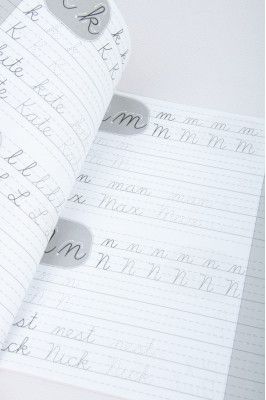 k
k k k
K K
kite kite
Kate Kate
l l l l l
L L L
m m m m m
M M M M M
n man man
x Max Max
n n n n n n n
N N N N N N
st nest nest
ck Nick Nick